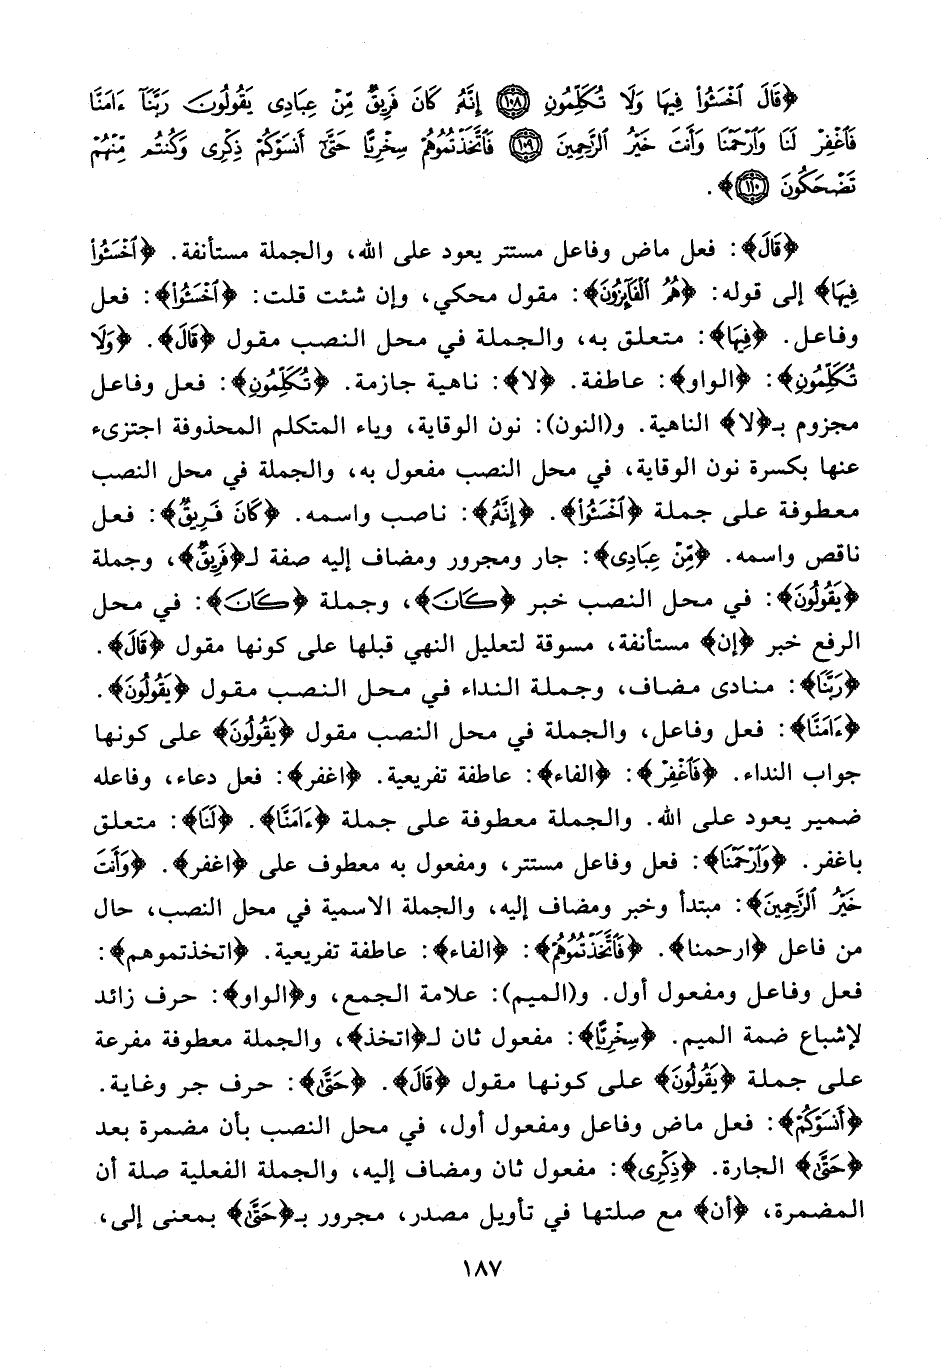 ﴿قَالَ ٱخْسَـُٔوا۟ فِيهَا وَلَا تُكَلِّمُونِ ﴿١٠٨﴾ إِنَّهُۥ كَانَ فَرِيقٌ مِّنْ عِبَادِى يَقُولُونَ رَبَّنَآ ءَامَنَّا
فَٱغْفِرْ لَنَا وَٱرْحَمْنَا وَأَنتَ خَيْرُ ٱلرَّٰحِمِينَ ﴿١٠٩﴾ فَٱتَّخَذْتُمُوهُمْ سِخْرِيًّا حَتَّىٰٓ أَنسَوْكُمْ ذِكْرِى وَكُنتُم مِّنْهُمْ
تَضْحَكُونَ ﴿١١٠﴾﴾.
﴿قَالَ﴾: فعل ماض وفاعل مستتر يعود على الله، والجملة مستأنفة. ﴿ٱخْسَـُٔوا۟
فِيهَا﴾ إلى قوله: ﴿هُمُ ٱلْفَآئِزُونَ﴾: مقول محكي، وإن شئت قلت: ﴿ٱخْسَـُٔوا۟﴾: فعل
وفاعل. ﴿فِيهَا﴾: متعلق به، والجملة في محل النصب مقول ﴿قَالَ﴾. ﴿وَلَا
تُكَلِّمُونِ﴾: ﴿الواو﴾: عاطفة. ﴿لا﴾: ناهية جازمة. ﴿تُكَلِّمُونِ﴾: فعل وفاعل
مجزوم بـ﴿لا﴾ الناهية. و(النون): نون الوقاية، وياء المتكلم المحذوفة اجتزىء
عنها بكسرة نون الوقاية، في محل النصب مفعول به، والجملة في محل النصب
معطوفة على جملة ﴿ٱخْسَـُٔوا۟﴾. ﴿إِنَّهُۥ﴾: ناصب واسمه. ﴿كَانَ فَرِيقٌ﴾: فعل
ناقص واسمه. ﴿مِّنْ عِبَادِى﴾: جار ومجرور ومضاف إليه صفة لـ﴿فَرِيقٌ﴾، وجملة
﴿يَقُولُونَ﴾: في محل النصب خبر ﴿كَانَ﴾، وجملة ﴿كَانَ﴾: في محل
الرفع خبر ﴿إن﴾ مستأنفة، مسوقة لتعليل النهي قبلها على كونها مقول ﴿قَالَ﴾.
﴿رَبَّنَا﴾: منادى مضاف، وجملة النداء في محل النصب مقول ﴿يَقُولُونَ﴾.
﴿ءَامَنَّا﴾: فعل وفاعل، والجملة في محل النصب مقول ﴿يَقُولُونَ﴾ على كونها
جواب النداء. ﴿فَٱغْفِرْ﴾: ﴿الفاء﴾: عاطفة تفريعية. ﴿اغفر﴾: فعل دعاء، وفاعله
ضمير يعود على الله. والجملة معطوفة على جملة ﴿ءَامَنَّا﴾. ﴿لَنَا﴾: متعلق
باغفر. ﴿وَٱرْحَمْنَا﴾: فعل وفاعل مستتر، ومفعول به معطوف على ﴿اغفر﴾. ﴿وَأَنتَ
خَيْرُ ٱلرَّٰحِمِينَ﴾: مبتدأ وخبر ومضاف إليه، والجملة الاسمية في محل النصب، حال
من فاعل ﴿ارحمنا﴾. ﴿فَٱتَّخَذْتُمُوهُمْ﴾: ﴿الفاء﴾: عاطفة تفريعية. ﴿اتخذتموهم﴾:
فعل وفاعل ومفعول أول. و(الميم): علامة الجمع، و﴿الواو﴾: حرف زائد
لإشباع ضمة الميم. ﴿سِخْرِيًّا﴾: مفعول ثان لـ﴿اتخذ﴾، والجملة معطوفة مفرعة
على جملة ﴿يَقُولُونَ﴾ على كونها مقول ﴿قَالَ﴾. ﴿حَتَّىٰ﴾: حرف جر وغاية.
﴿أَنسَوْكُمْ﴾: فعل ماض وفاعل ومفعول أول، في محل النصب بأن مضمرة بعد
﴿حَتَّىٰ﴾ الجارة. ﴿ذِكْرِى﴾: مفعول ثان ومضاف إليه، والجملة الفعلية صلة أن
المضمرة، ﴿أن﴾ مع صلتها في تأويل مصدر، مجرور بـ﴿حَتَّىٰ﴾ بمعنى إلى،
١٨٧